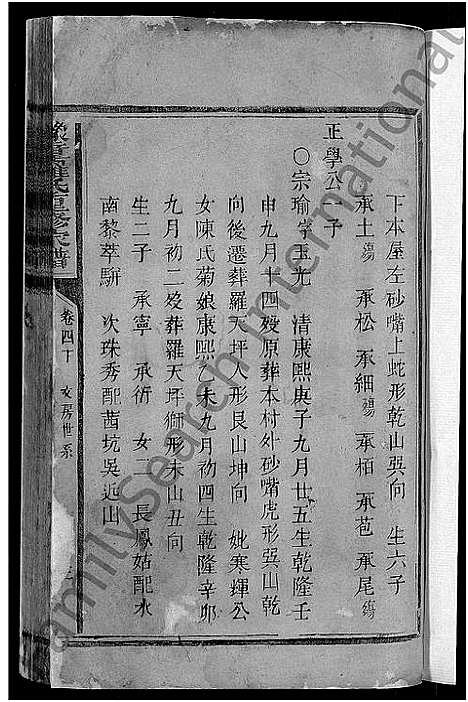 下本屋左砂嘴上蛇形乾山巽向　生六子
承土殤　承松　承細殤　承栢　承苞　承尾殤
正學公子
○宗瑜字玉光　清康熙庚子九月廿五生乾隆壬
申九月十四歿原葬本村外砂嘴虎形巽山乾
向後遷葬羅天坪人形艮山坤向　妣寒輝公
女陳氏菊娘康熙乙未九月初四生乾隆辛卯
九月初二歿葬羅天坪獅形未山丑向
生二子　承寧　承衍　女二　長鳳姑配水
南黎萃駢　次珠秀配茜坑吳远山
羅氏重修宗譜
卷四下　文房世系
FamilySearch International